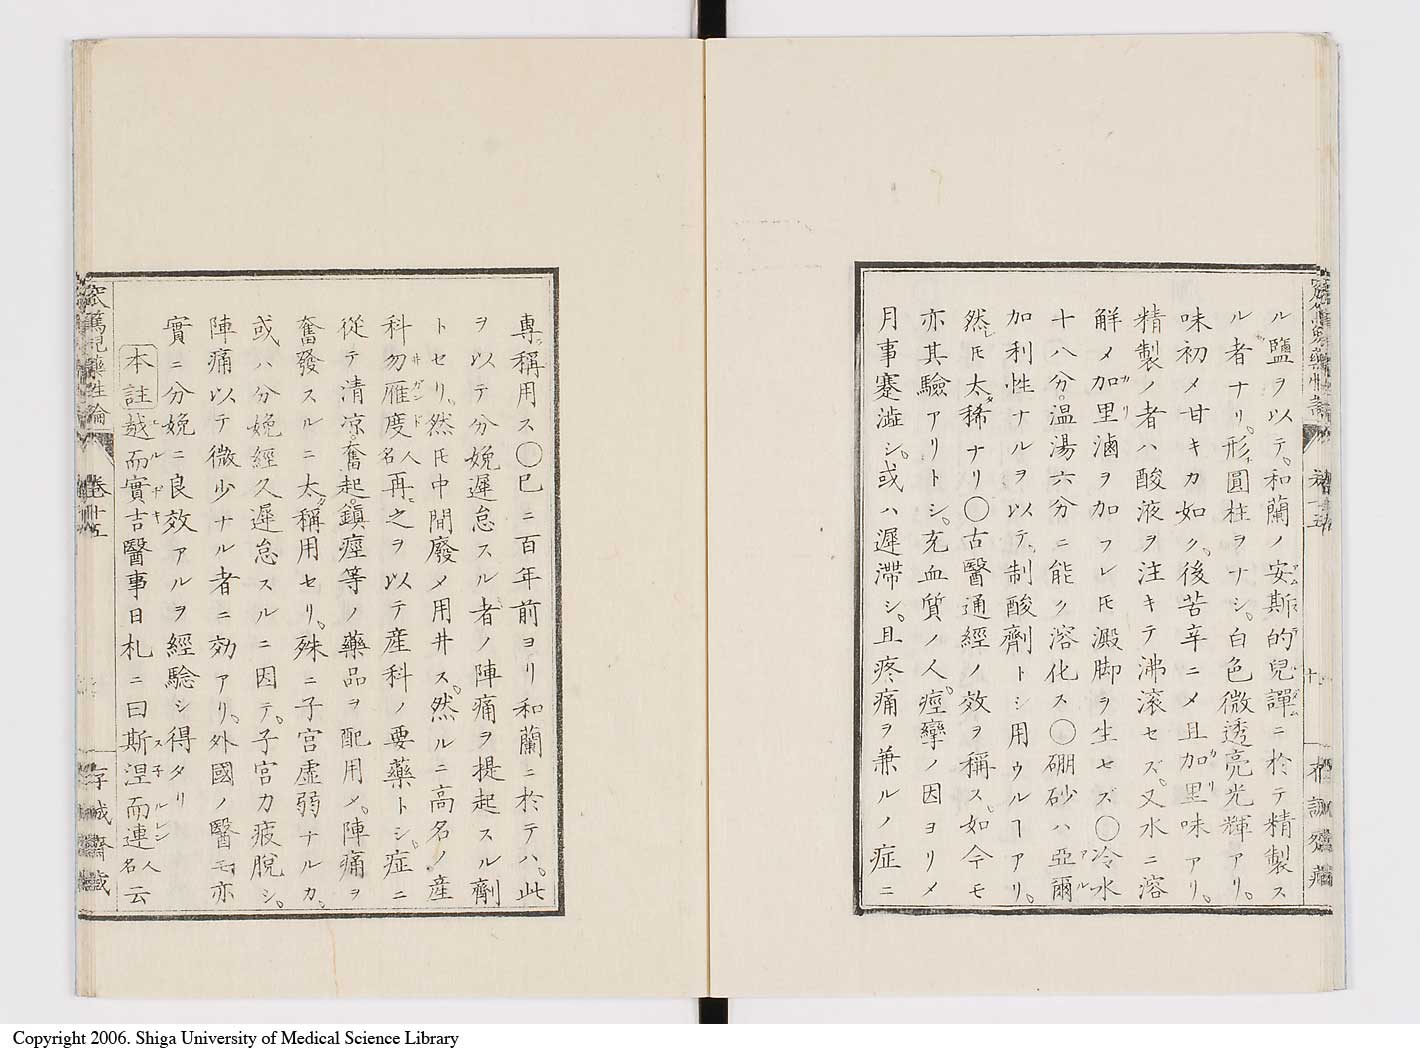 ル鹽ヲ以テ。和蘭ノ安斯的兒譂ニ於テ精製ス
ル者ナリ。形チ圓柱ヲナシ。白色微透亮光輝アリ。
味初メ甘キカ如ク。後苦辛ニメ且加里味アリ。
精製ノ者ハ酸液ヲ注キテ沸滚セズ。又水ニ溶
解メ加里滷ヲ加フレ𪜈澱脚ヲ生セズ〇冷水
十八分。温湯六分ニ能ク溶化ス〇硼砂ハ亞爾
加利性ナルヲ以テ。制酸劑トシ用ウルヿアリ。
然レ𪜈太タ稀ナリ〇古醫通經ノ效ヲ稱ス。如今モ
亦其驗アリトシ。充血質ノ人。痙攣ノ因ヨリメ
月事蹇澁シ。或ハ遲滯シ。且疼痛ヲ兼ルノ症ニ
專ラ稱用ス〇巳ニ百年前ヨリ和蘭ニ於テハ。此
ヲ以テ分娩遲怠スル者ノ陣痛ヲ提起スル劑
トセリ。然𪜈中間廢メ用井ス。然ルニ高名ノ産
科勿雁度人名再ヒ之ヲ以テ産科ノ要藥トシ。症ニ
從テ清凉。奮起。鎭痙等ノ藥品ヲ配用メ。陣痛ヲ
奮發スルニ太タ稱用セリ。殊ニ子宮虚弱ナルカ。
或ハ分娩經久遲怠スルニ因テ。子宮力疲脱シ。
陣痛以テ微少ナル者ニ効アリ。外國ノ醫モ亦
實ニ分娩ニ良效アルヲ經驗シ得タリ
本註越而實吉醫事日札ニ曰斯涅而連人名云
窊篤兒藥性論 卷十五
存誠齋藏